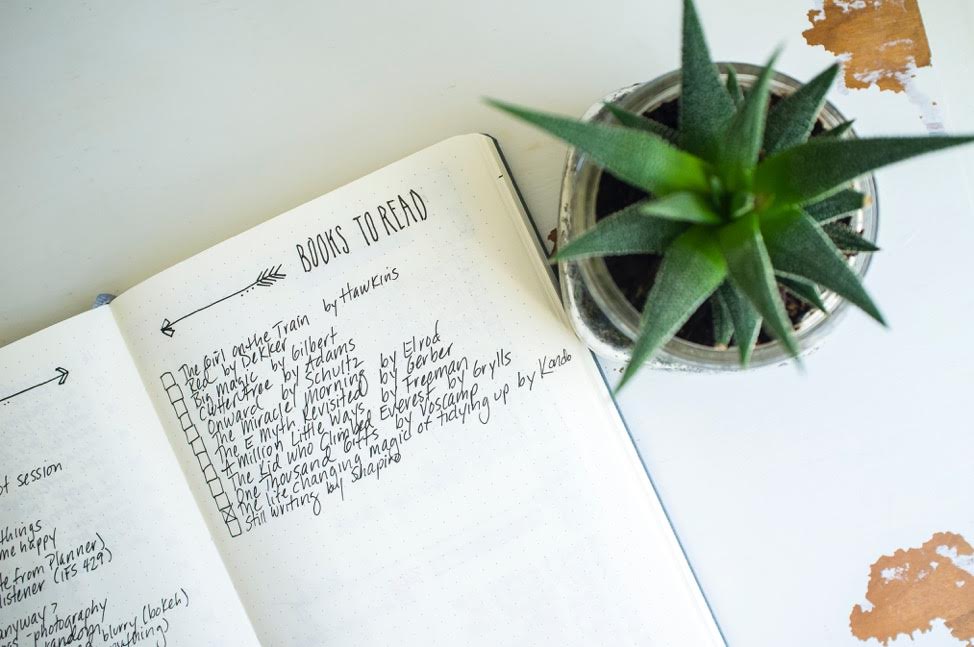 ot session
things
me happy
te from Planner)
listener (IFS 429)
anyway?
photography
random
blurry (bokeh)
nything)
BOOKS TO READ
The Girl on the Train by Hawkins
Red by Dekker
Big magic by Gilbert
Clutterfree by Adams
Onward by Schultz
The Miracle Morning by Elrod
The E Myth Revisited by Gerber
A million Little Ways by Freeman
The Kid who Climbed Everest by Grylls
One Thousand Gifts by Voscamp
The life Changing magic of tidying up by Kondo
Still writing by Shapiro